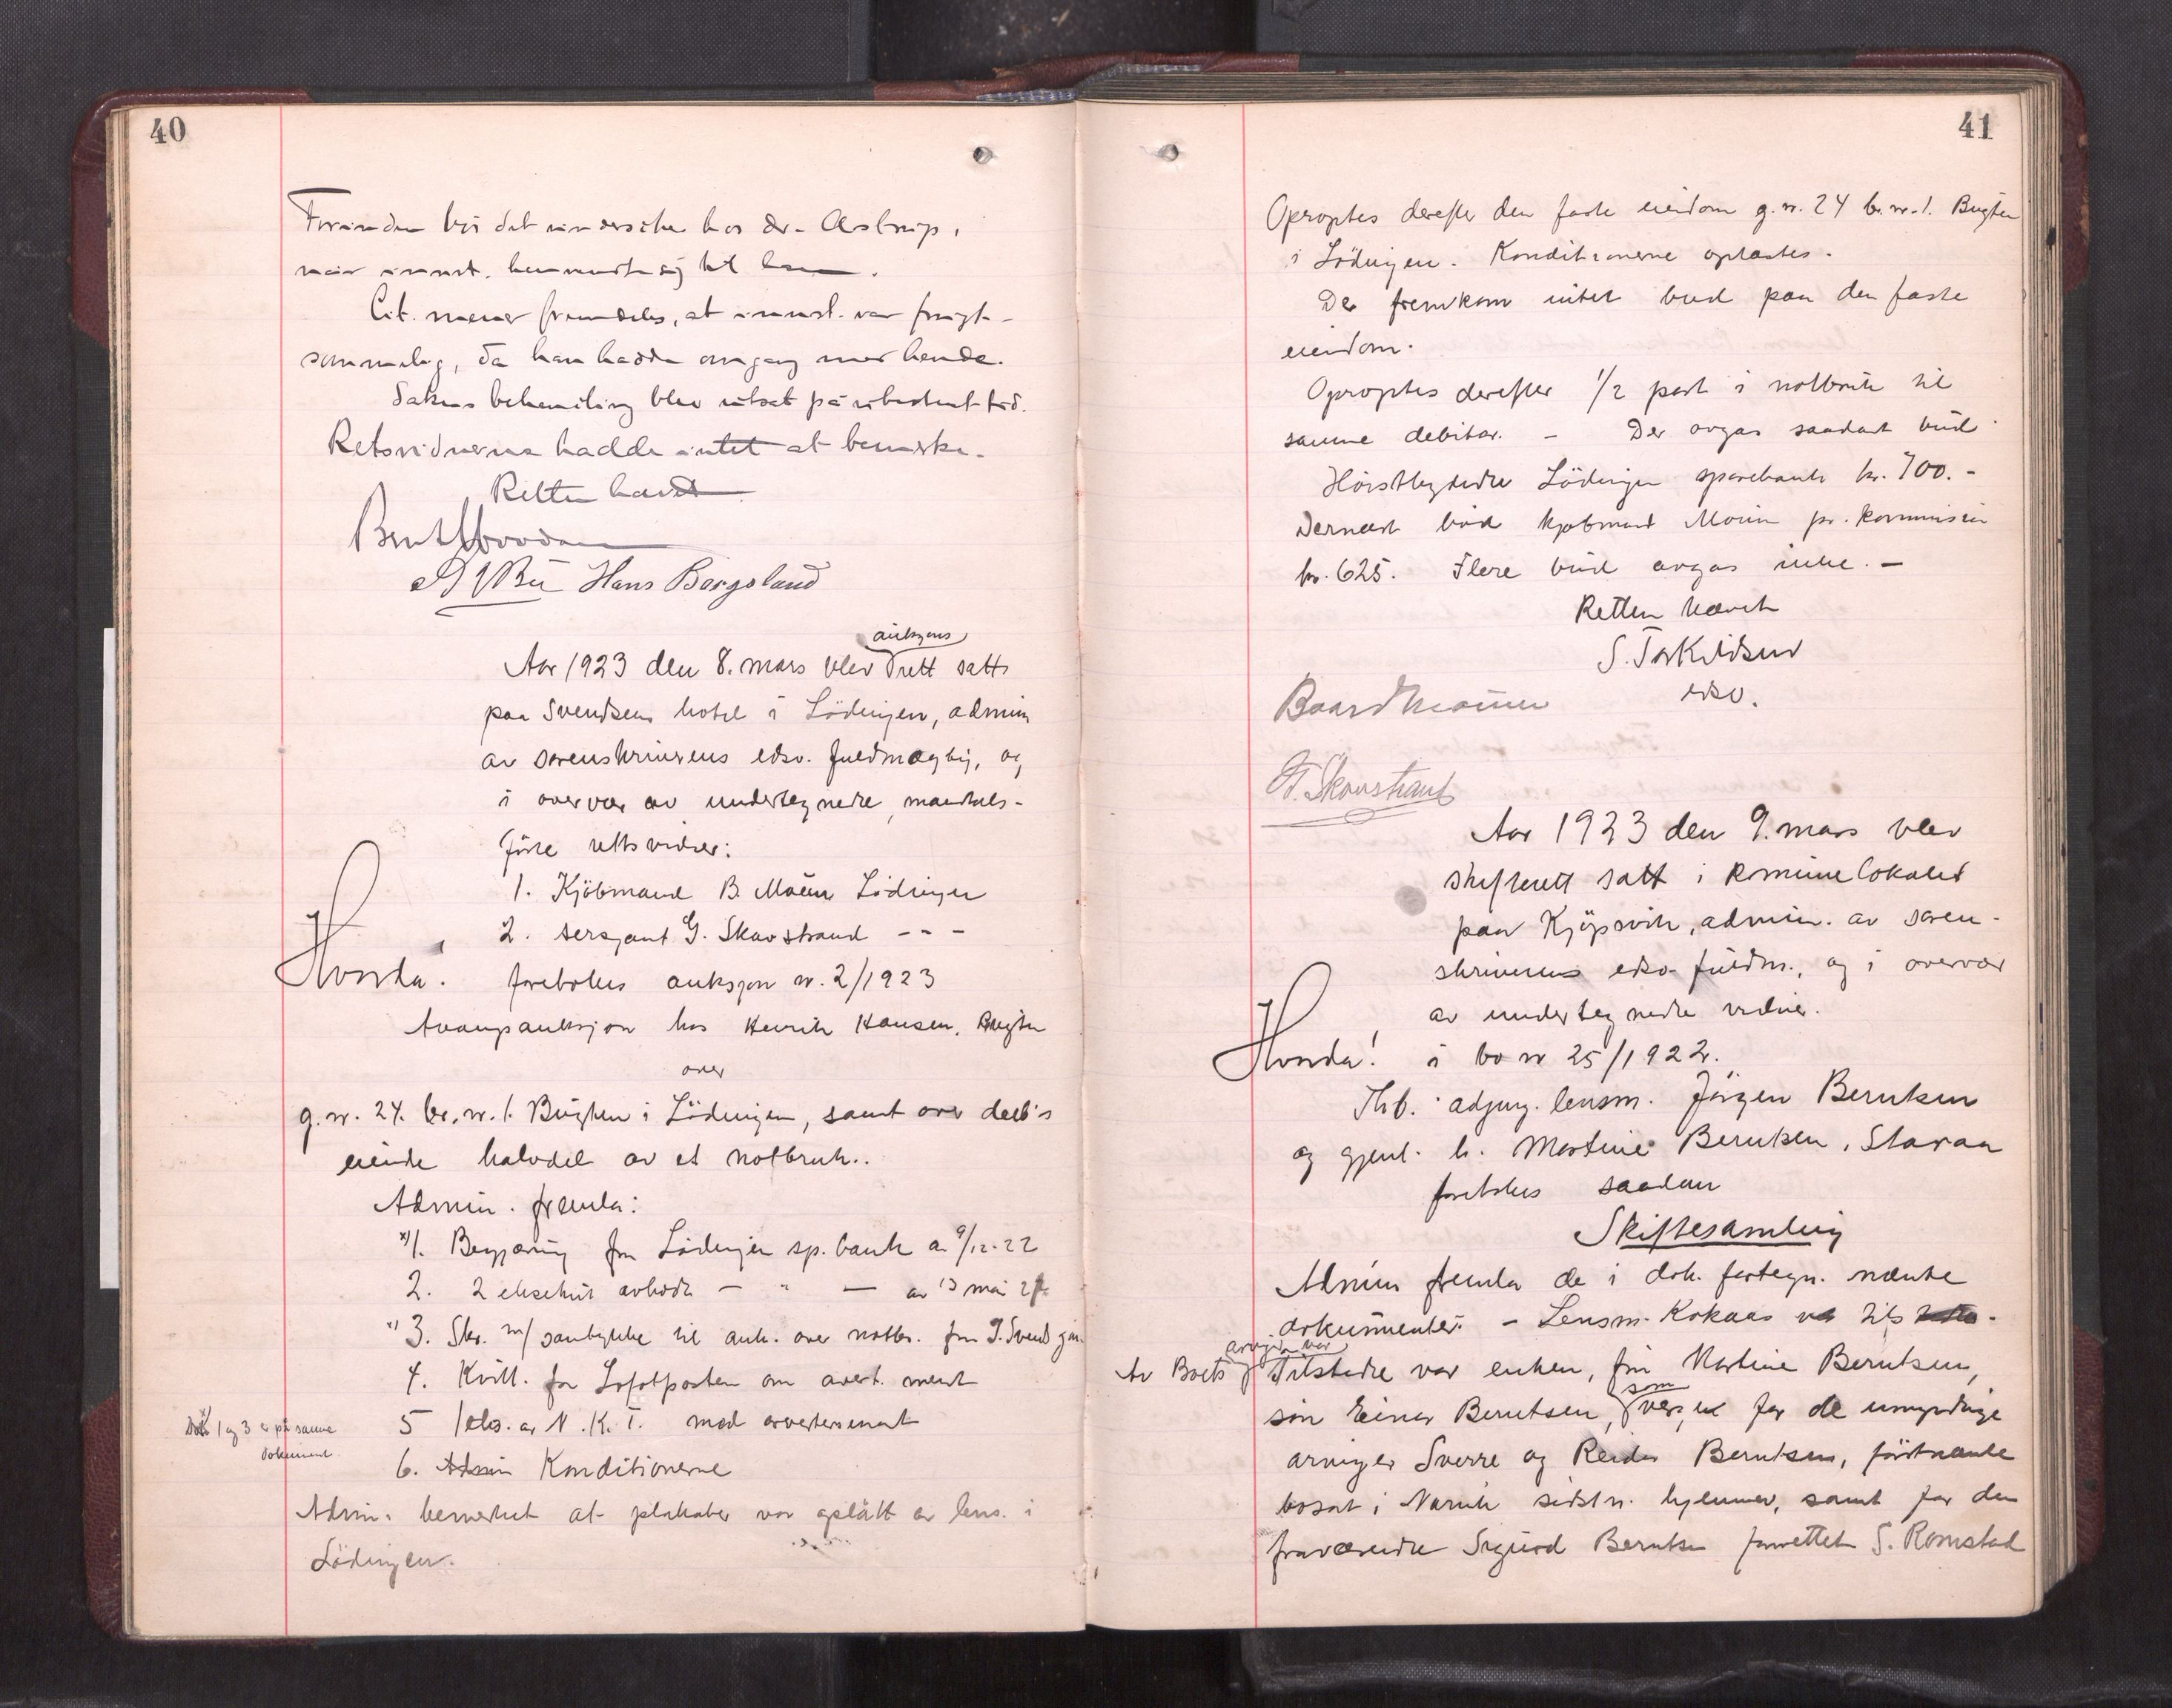 40
Forinden bør det undersøkes hos dr. Astrup,
når innst. henvendte sig til ham.
Cit. mener fremdeles, at innst. var frugt-
sommelig, da han hadde omgang med hende.
Sakens behandling blev utsat på ubestemt tid.
Retsvidnerne hadde intet at bemerke.
Retten hævet
Hans Borgsland
auksjons
Aar 1923 den 8. mars blev rett satt
paa Svendsens hotel i Lödingen, admin
av sorenskriverens edsv. fuldmægtig, og
i overvær av undertegnede, mandtals-
förte rettsvidner:
1. Kjöbmand B. Moen Lödingen
2. sersjant G. Skavstrand - - -
Hvorda: foretokes auksjon nr. 2/1923
tvangsauksjon hos Henrik Hansen, Bugten
over
g. nr. 24 br. nr. 1. Bugten i Lödingen, samt over deb's
eiende halvdel av et notbruk..
Admin. fremla:
x) 1. Begjæring fra Lödingen sp. bank a. 9/12-22
2. 2 eksekut. avholdt — " — av 13 mai 22
") 3. Skr. m/ samtykke til auk. over notbr. fra
4. Kvitt. for Lofotposten om avert. ment
5 1 eks. av N. K. T. med avertersement
Dok 1 og 3 er på samme
dokument.
6. Admin Konditionerne
Admin. bemerket at plakater var opslått av lens. i
Lödingen.
41
Oproptes derefter den faste eiendom g. nr. 24 br. nr. 1. Bugten
i Lödingen. Konditionerne oplæstes.
Der fremkom intet bud paa den faste
eiendom.
Oproptes derefter 1/2 part i notbruk til
samme debitor. - Der avgas saadant bud
Höistbydende Lödingen sparebank kr. 700.-
Dernæst böd kjöbmand Moen pr. kommisjon
kr. 625. Flere bud avgas ikke. -
Retten hævet
S. Torkildsen
edsv.
Baard Moen
G. Skavstrand
Aar 1923 den 9. mars blev
skifterett satt i komunelokalet
paa Kjöpsvik, admin. av soren-
skriverens edsv. fuldm., og i overvær
av undertegnede vidner.
Hvorda! i bo nr 25/1922.
Fhv. adjung. lensm. Jörgen Berntsen
og gjenl. h. Martine Berntsen, Storaa
foretokes saadan
Skiftesamling
Admin fremla de i dok. fortegn. nævnte
dokumenter. - Lensm. Kokaas
arvinger var
Av Boets Tilstede var enken, fru Martine Berntsen,
som
sön Einar Berntsen, verge for de umyndige
arvinger Sverre og Reidar Berntsen, förstnævnte
bosat i Narvik sidstn. hjemme, samt for den
fraværende Sigurd Berntsen forrettet S. Romstad